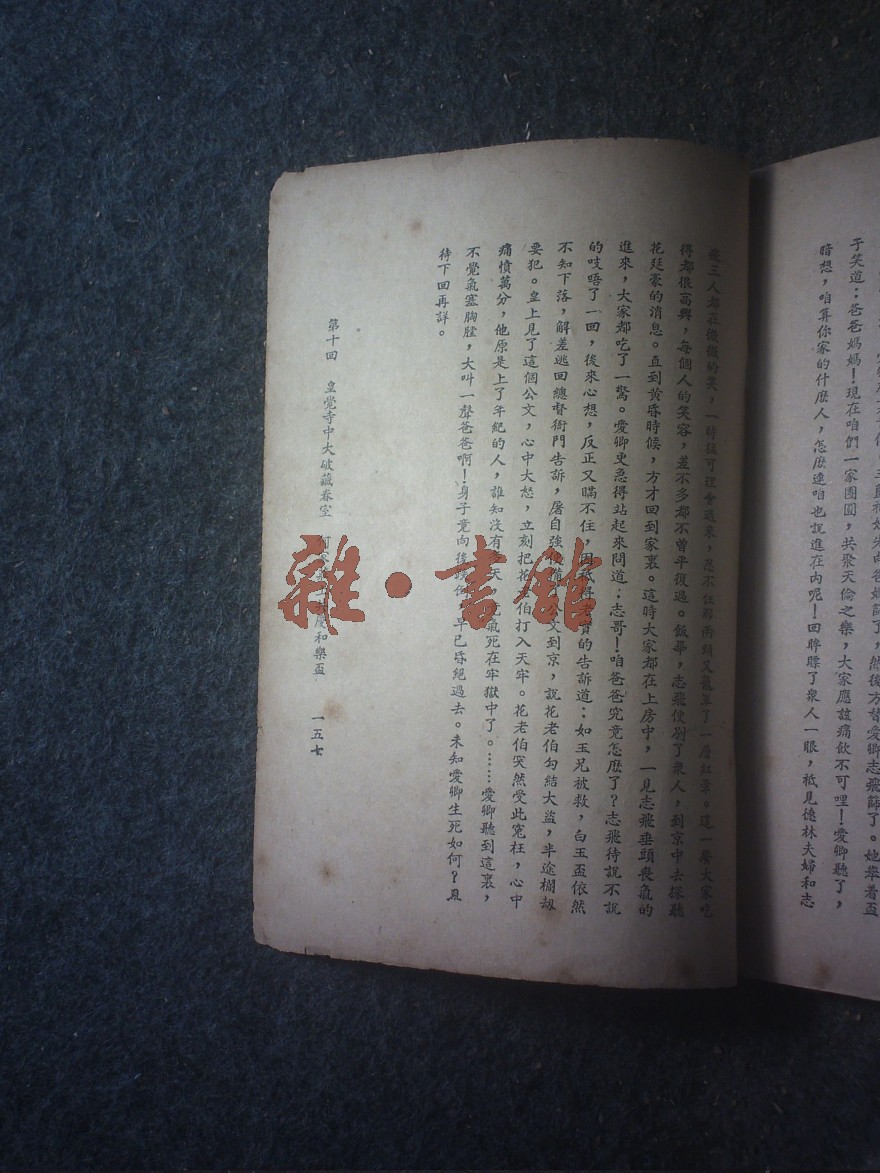 子笑道：爸爸媽媽！現在咱們一家團圓，共聚天倫之樂，大家應該痛飲不可哩！愛卿聽了，
暗想，咱算你家的什麽人，怎麽連咱也說進在內呢！回眸瞟了衆人一眼，祗見德林夫婦和志
飛三人都在微微的笑，一時猛可理會過來，忍不住那兩頰又籠罩了一層紅霞。這一餐大家吃
得都很高興，每個人的笑容，差不多都不曾平復過。飯畢，志飛便別了衆人，到京中去探聽
花廷豪的消息。直到黃昏時候，方才回到家裏。這時大家都在上房中，一見志飛垂頭喪氣的
進來，大家都吃了一驚。愛卿更急得站起來問道：志哥！咱爸爸究竟怎麽了？志飛待說不說
的吱唔了一回，後來心想，反正又瞞不住，因祗得老實的告訴道：如玉兄被救，白玉盃依然
不知下落，解差逃回總督衙門告訴，屠自強便備公文到京，說花老伯勾結大盜，半途攔刼
要犯。皇上見了這個公文，心中大怒，立刻把花老伯打入天牢。花老伯突然受此寃枉，心中
痛憤萬分，他原是上了年紀的人，誰知沒有多天，氣死在牢獄中了。……愛卿聽到這裏，
不覺氣塞胸膛，大叫一聲爸爸啊！身子竟向後跌倒，早已昏絕過去。未知愛卿生死如何？且
待下回再詳。
第十回　皇覺寺中大破藏春室　慶和樂盃　一五七
雜·書館